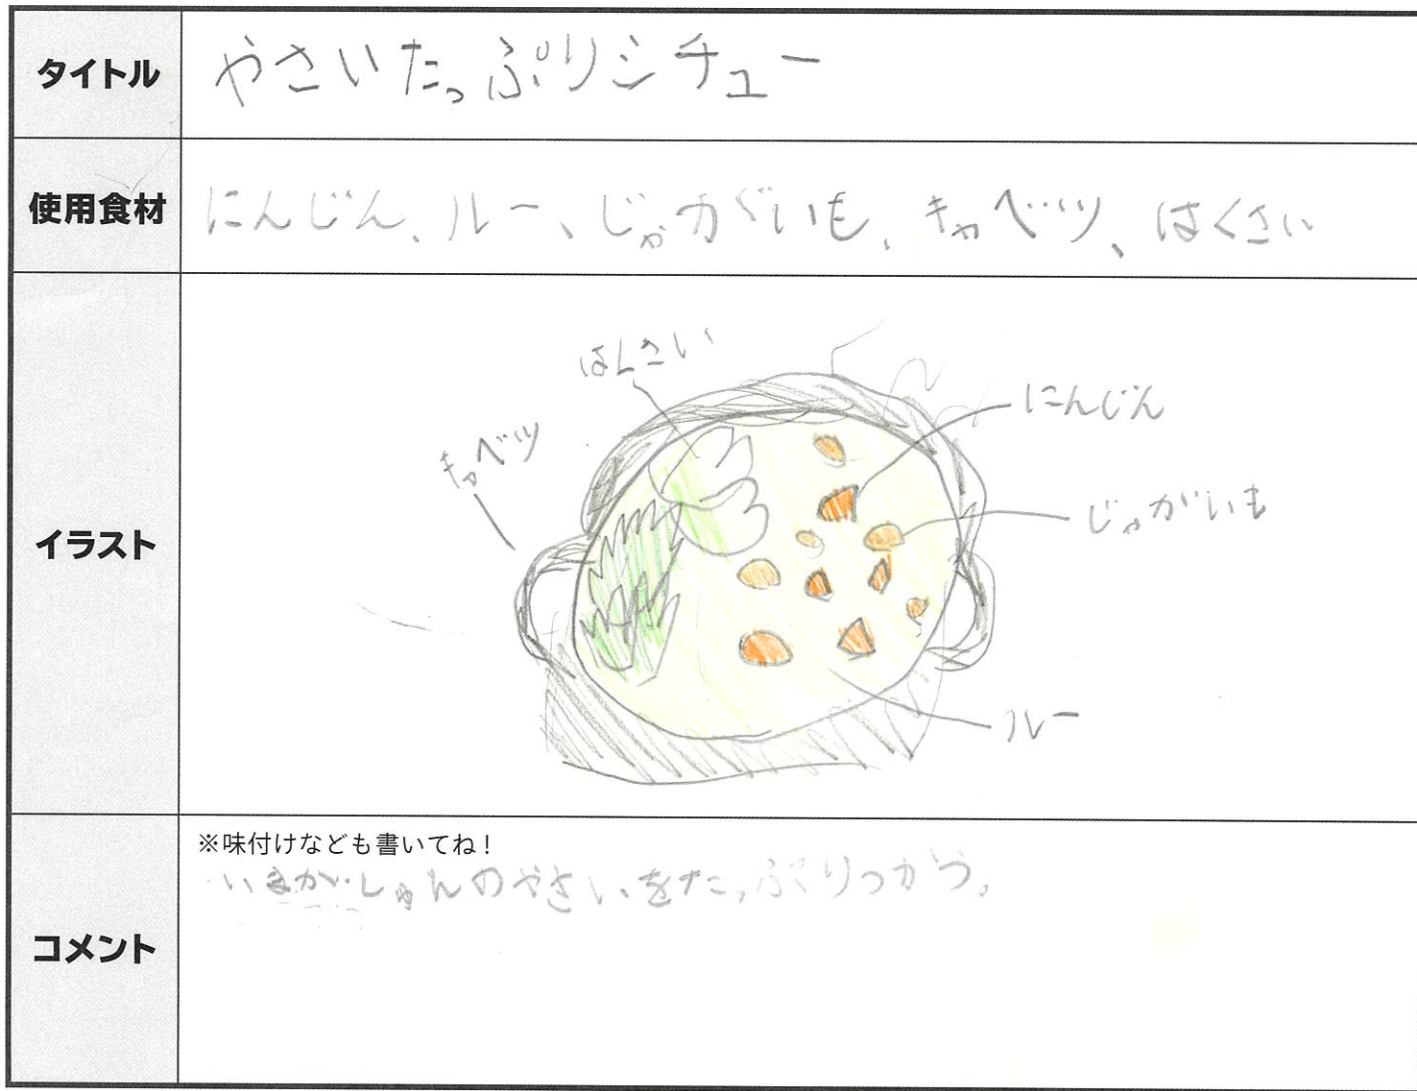 タイトル
やさいたっぷりシチュー
使用食材
にんじん、ルー、じゃがいも、キャベツ、はくさい
イラスト
はくさい
にんじん
キャベツ
じゃがいも
ルー
コメント
※味付けなども書いてね!
いまがしゅんのやさいをたっぷりつかう。